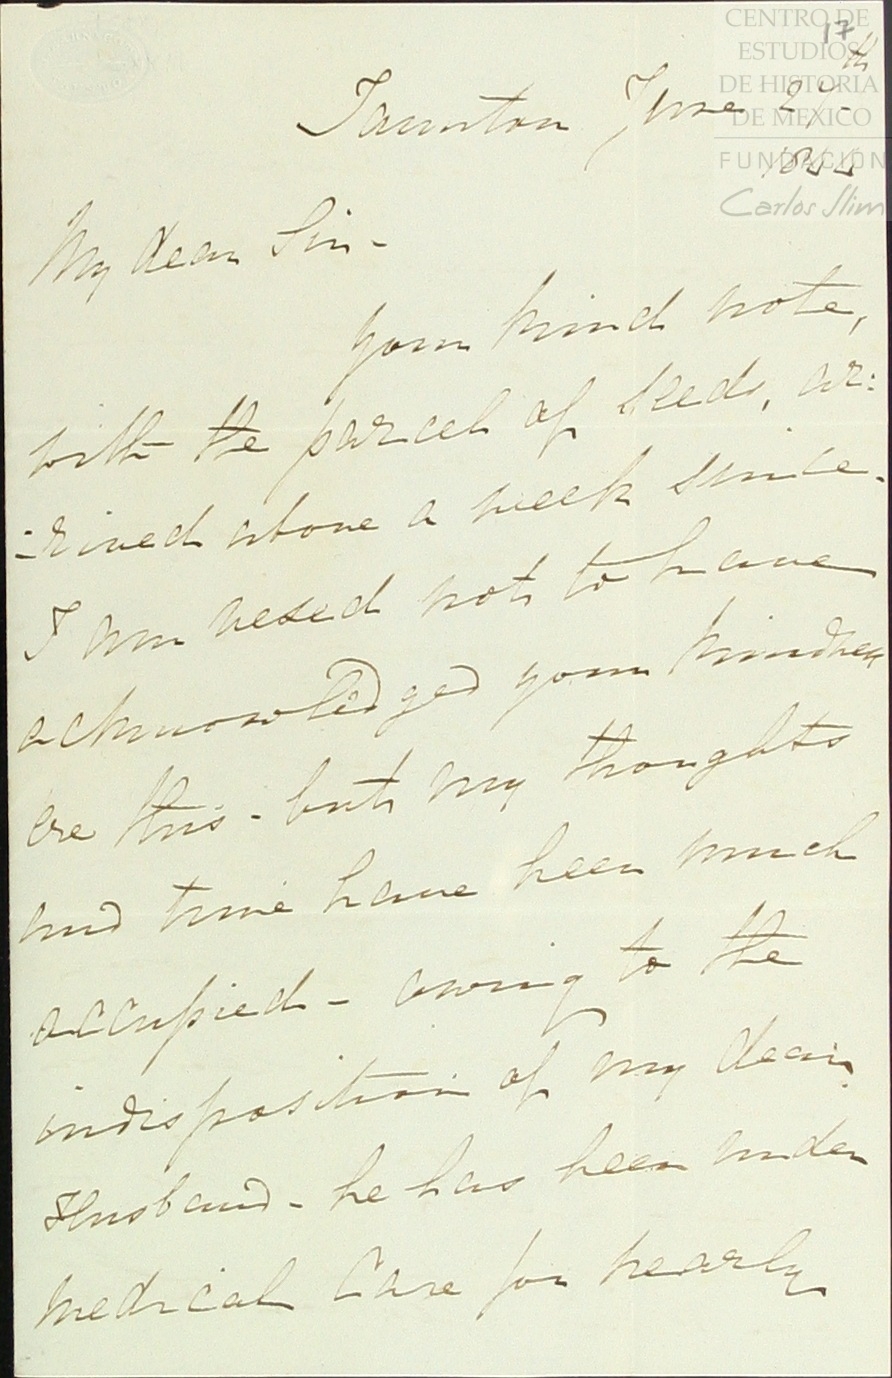 CENTRO DE
ESTUDIOS
DE HISTORIA
DE MEXICO
FUNDACIÓN
Carlos Slim
17
Taunton June 27th
My dear Sir -
your kind note,
with the parcel of seeds, ar:
=rived above a week since.
I am vexed not to have
acknowledged your kindness
ere this - but my thoughts
and time have been much
occupied - owing to the
indisposition of my dear
Husband - he has been under
medical care for nearly